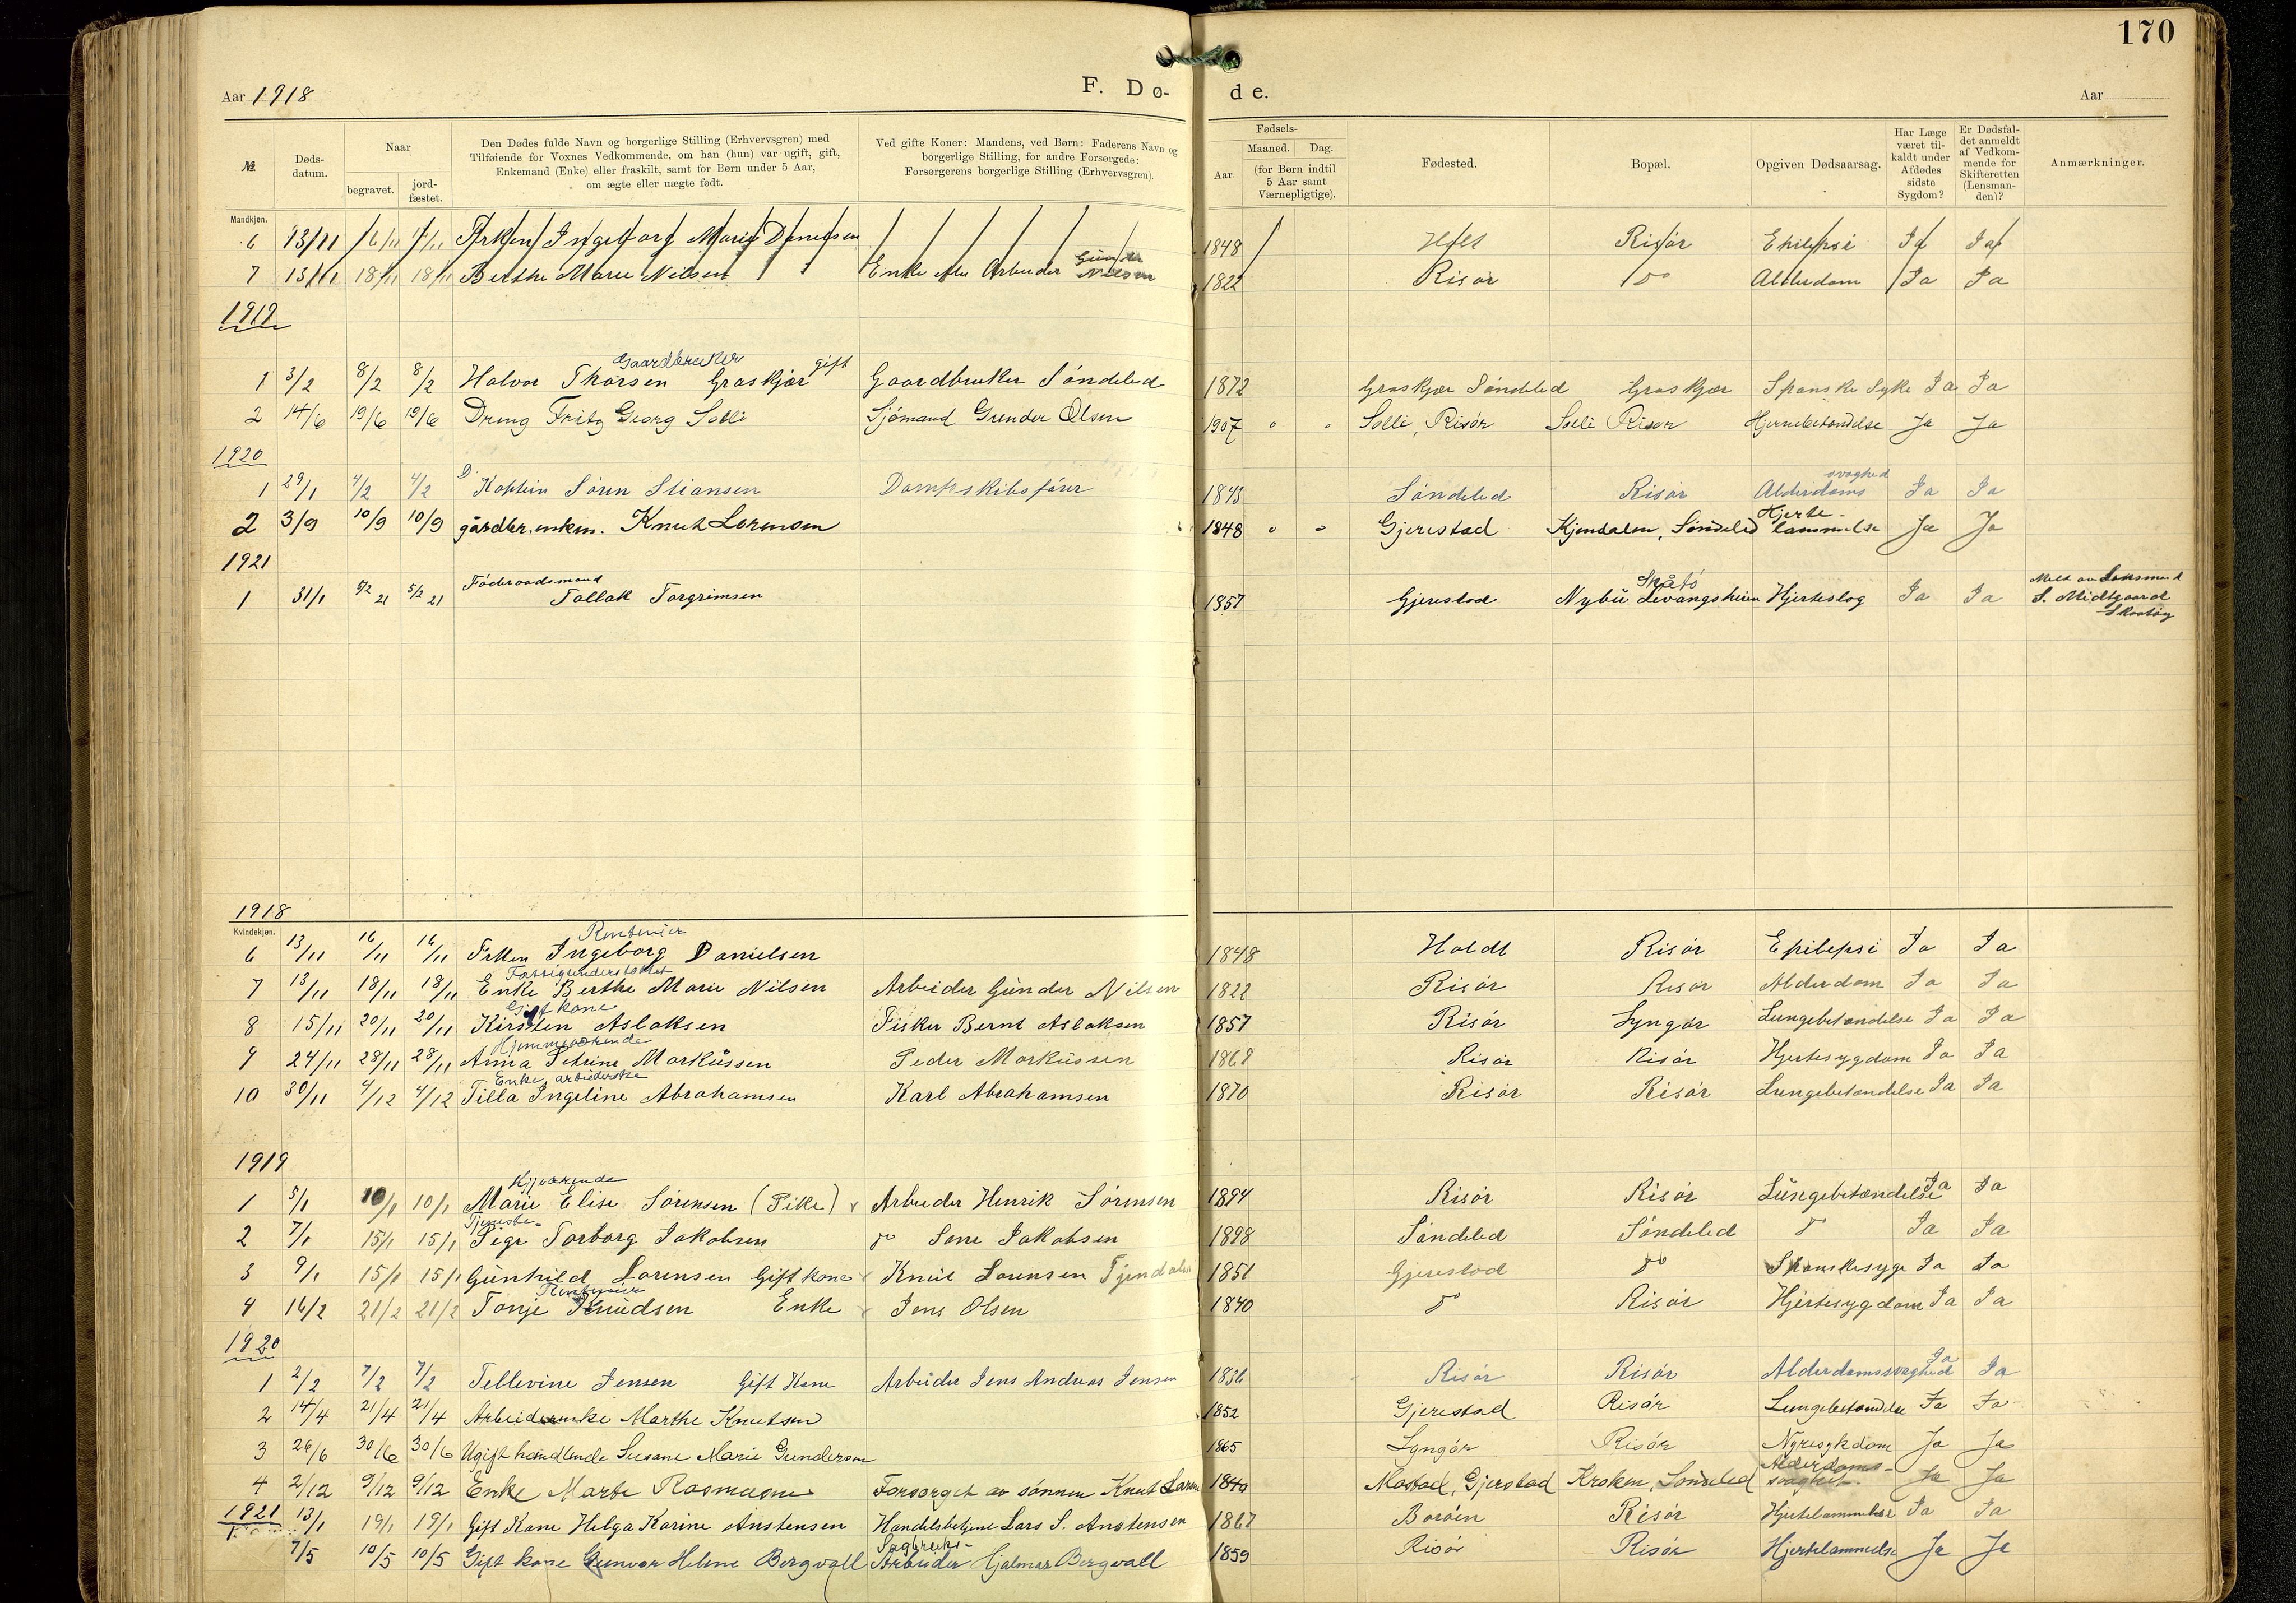 170
Aar 1918
F. Dø-
de.
Aar
№
Døds-
datum.
Naar
begravet.
jord-
fæstet.
Den Dødes fulde Navn og borgerlige Stilling (Erhvervsgren) med
Tilføiende for Voxnes Vedkommende, om han (hun) var ugift, gift,
Enkemand (Enke) eller fraskilt, samt for Børn under 5 Aar,
om ægte eller uægte født.
Ved gifte Koner: Mandens, ved Børn: Faderens Navn og
borgerlige Stilling, for andre Forsørgede:
Forsørgerens borgerlige Stilling (Erhvervsgren).
Fødsels-
Aar.
Maaned.
Dag.
(for Børn indtil
5 Aar samt
Værnepligtige).
Fødested.
Bopæl.
Opgiven Dødsaarsag.
Har Læge
været til-
kaldt under
Afdødes
sidste
Sygdom?
Er Dødsfal-
det anmeldt
af Vedkom-
mende for
Skifteretten
(Lensman-
den)?
Anmærkninger.
Mandkjøn.
6 13/11 16/11 Frken Ingeborg Marie Danielsen 1848 Holt Risör Epilepsi Ja Ja
7 13/11 18/11 18/11 Berthe Marie Nilsen Enke efter Arbeider Gunder Nilsen 1822 Risör do Alderdom Ja Ja
1919
Gaardbruker gift
1 3/2 8/2 8/2 Halvor Thorsen Graskjær Gaardbruker Söndeled 1872 Graskjær Söndeled Graskjær Spanske Syke Ja Ja
2 14/6 19/6 19/6 Dreng Fritz Georg Solli Sjömand Gunder Olsen 1907 Solli, Risör Solli Risør Hjernebetændelse Ja Ja
1920
svaghed
1 29/1 4/2 4/2 Kaptein Sören Stiansen Dampskibsförer 1843 Söndeled Risör Alderdoms Ja Ja
Hjerte-
2 3/9 10/9 10/9 gårdbr. enkm. Knut Lorensen 1848 Gjerestad Kjendalen, Söndeled lammelse Ja Ja
1921
Föderaadsmand Skåtö Meldt av Lensmand
1 31/1 5/2 21 5/2 21 Tallak Torgrimsen 1857 Gjerestad Nybü Levangsheien Hjerteslag Ja Ja S. Midtgaard
Skaatöy
1918
Kvindekjøn.
Rentenier
6 13/11 16/11 16/11 Frken Ingeborg Danielsen 1848 Holdt Risör Epilepsi Ja Ja
Fattigunderstöttet
7 13/11 18/11 18/11 Enke Berthe Marie Nilsen Arbeider Günder Nilsen 1822 Risör Risör Alderdom Ja Ja
Gift kone
8 15/11 20/11 20/11 Kirsten Aslaksen Fisker Bernt Aslaksen 1857 Risör Lyngör Lungebetændelse Ja Ja
Hjemmeværende
9 24/11 28/11 28/11 Anna Petrine Markussen Peder Markussen 1868 Risör Risör Hjertesygdom Ja Ja
Enke, arbiederske
10 30/11 4/12 4/12 Tilla Ingeline Abrahamsen Karl Abrahamsen 1870 Risör Risör Lungebetændelse Ja Ja
1919
Hjværende
1 5/1 10/1 10/1 Marie Elise Sörensen (Pike) Arbeider Henrik Sörensen 1894 Risör Risör Lüngebetændelse Ja Ja
Tjeneste-
2 7/1 15/1 15/1 Pige Torborg Jakobsen do Sone Jakobsen 1898 Söndeled Söndeled do Ja Ja
3 9/1 15/1 15/1 Günhild Lorensen Gift kone Knüt Lorensen 1851 Gjerestad do Spanskesyge Ja Ja
Rentenier
4 16/2 21/2 21/2 Tonje Knüdsen Enke Jens Olsen 1840 do Risör Hjertesygdom Ja Ja
1920
1 2/2 7/2 7/2 Tellevine Jensen Gift Kone Arbeider Jens Andreas Jensen 1836 Risör Risör Alderdomssvaghed Ja Ja
2 14/4 21/4 21/4 Arbeiderenke Marthe Knutsen 1852 Gjerestad Risör Lungebetændelse Ja Ja
3 26/6 30/6 30/6 Ugift handlende Susane Marie Gundersen 1865 Lyngör Risör Nyresykdom Ja Ja
Alderdoms-
4 2/12 9/12 9/12 Enke Marte Rasmusen Forsørget av sønnen Knut Larsen 1840 Mostad, Gjerstad Kroken, Søndeled svaghet. Ja Ja
1921 13/1 19/1 19/1 Gift Kone Helga Karine Anstensen Handelsbetjent Lars S. Anstensen 1867 Boröen Risör Hjertelammelse Ja Ja
Sagbruks-
7/5 10/5 10/5 Gift kone Gunvor Helene Bergvall Arbeider Hjalmar Bergvall 1859 Risör Risör Hjertelammelse Ja Ja